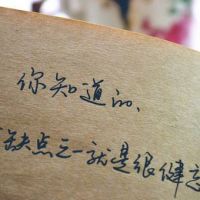 你知道的、
缺点之一就是很健忘